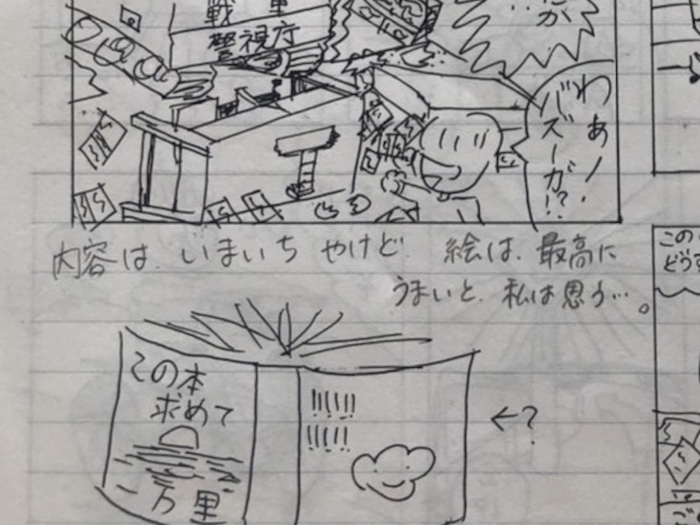 警視庁
にか
わぁ！
バズーカ！？
内容は、いまいち やけど、絵は、最高に
うまいと、私は思う…。
この
どうす
この本
求めて
一万里
!!!!!!
!!!!!!
←?